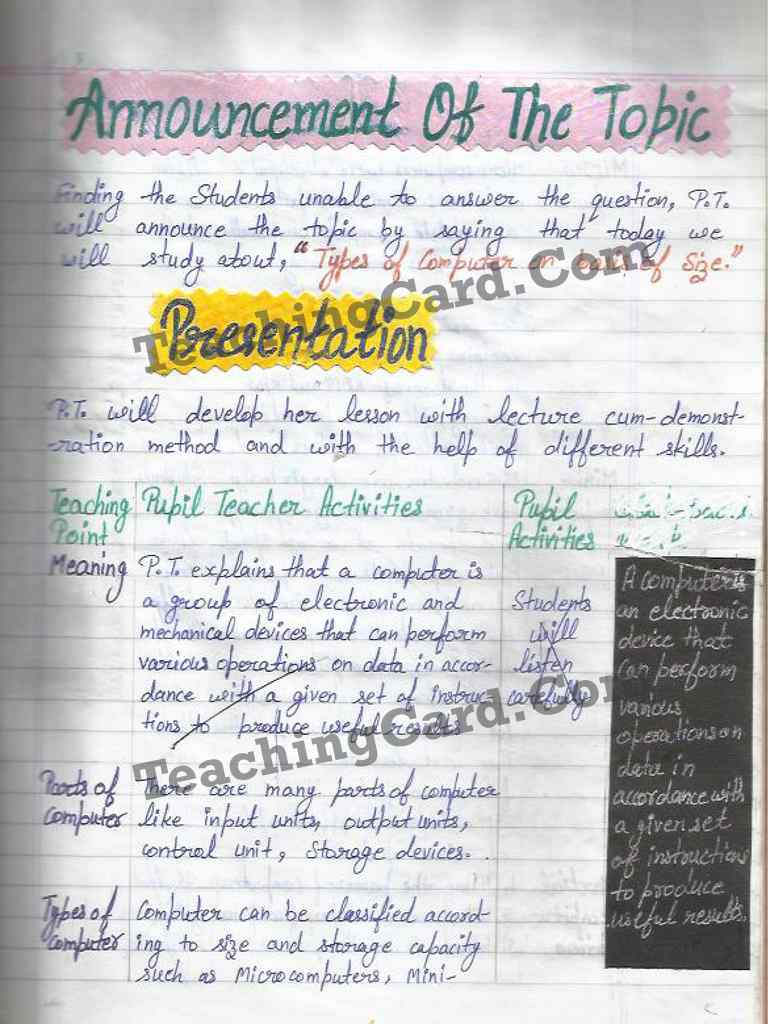 Announcement Of The Topic
Finding the Students unable to answer the question, P.T.
will announce the topic by saying that today we
will study about, "Types of Computer on basis of Size."
Presentation
P.T. will develop her lesson with lecture cum-demonst-
-ration method and with the help of different skills.
Teaching Point
Pupil Teacher Activities
Pupil Activities
Meaning
P.T. explains that a computer is
a group of electronic and
mechanical devices that can perform
various operations on data in accor-
dance with a given set of instruc-
tions to produce useful results
Students
will
listen
carefully
A computer is
an electronic
device that
can perform
various
operations on
data in
accordance with
a given set
of instructions
to produce
useful results.
Parts of
Computer
There are many parts of computer
like input units, output units,
control unit, Storage devices.
Types of
computer
Computer can be classified accord-
ing to size and storage capacity
such as Microcomputers, Mini-
TeachingCard.Com
TeachingCard.Com